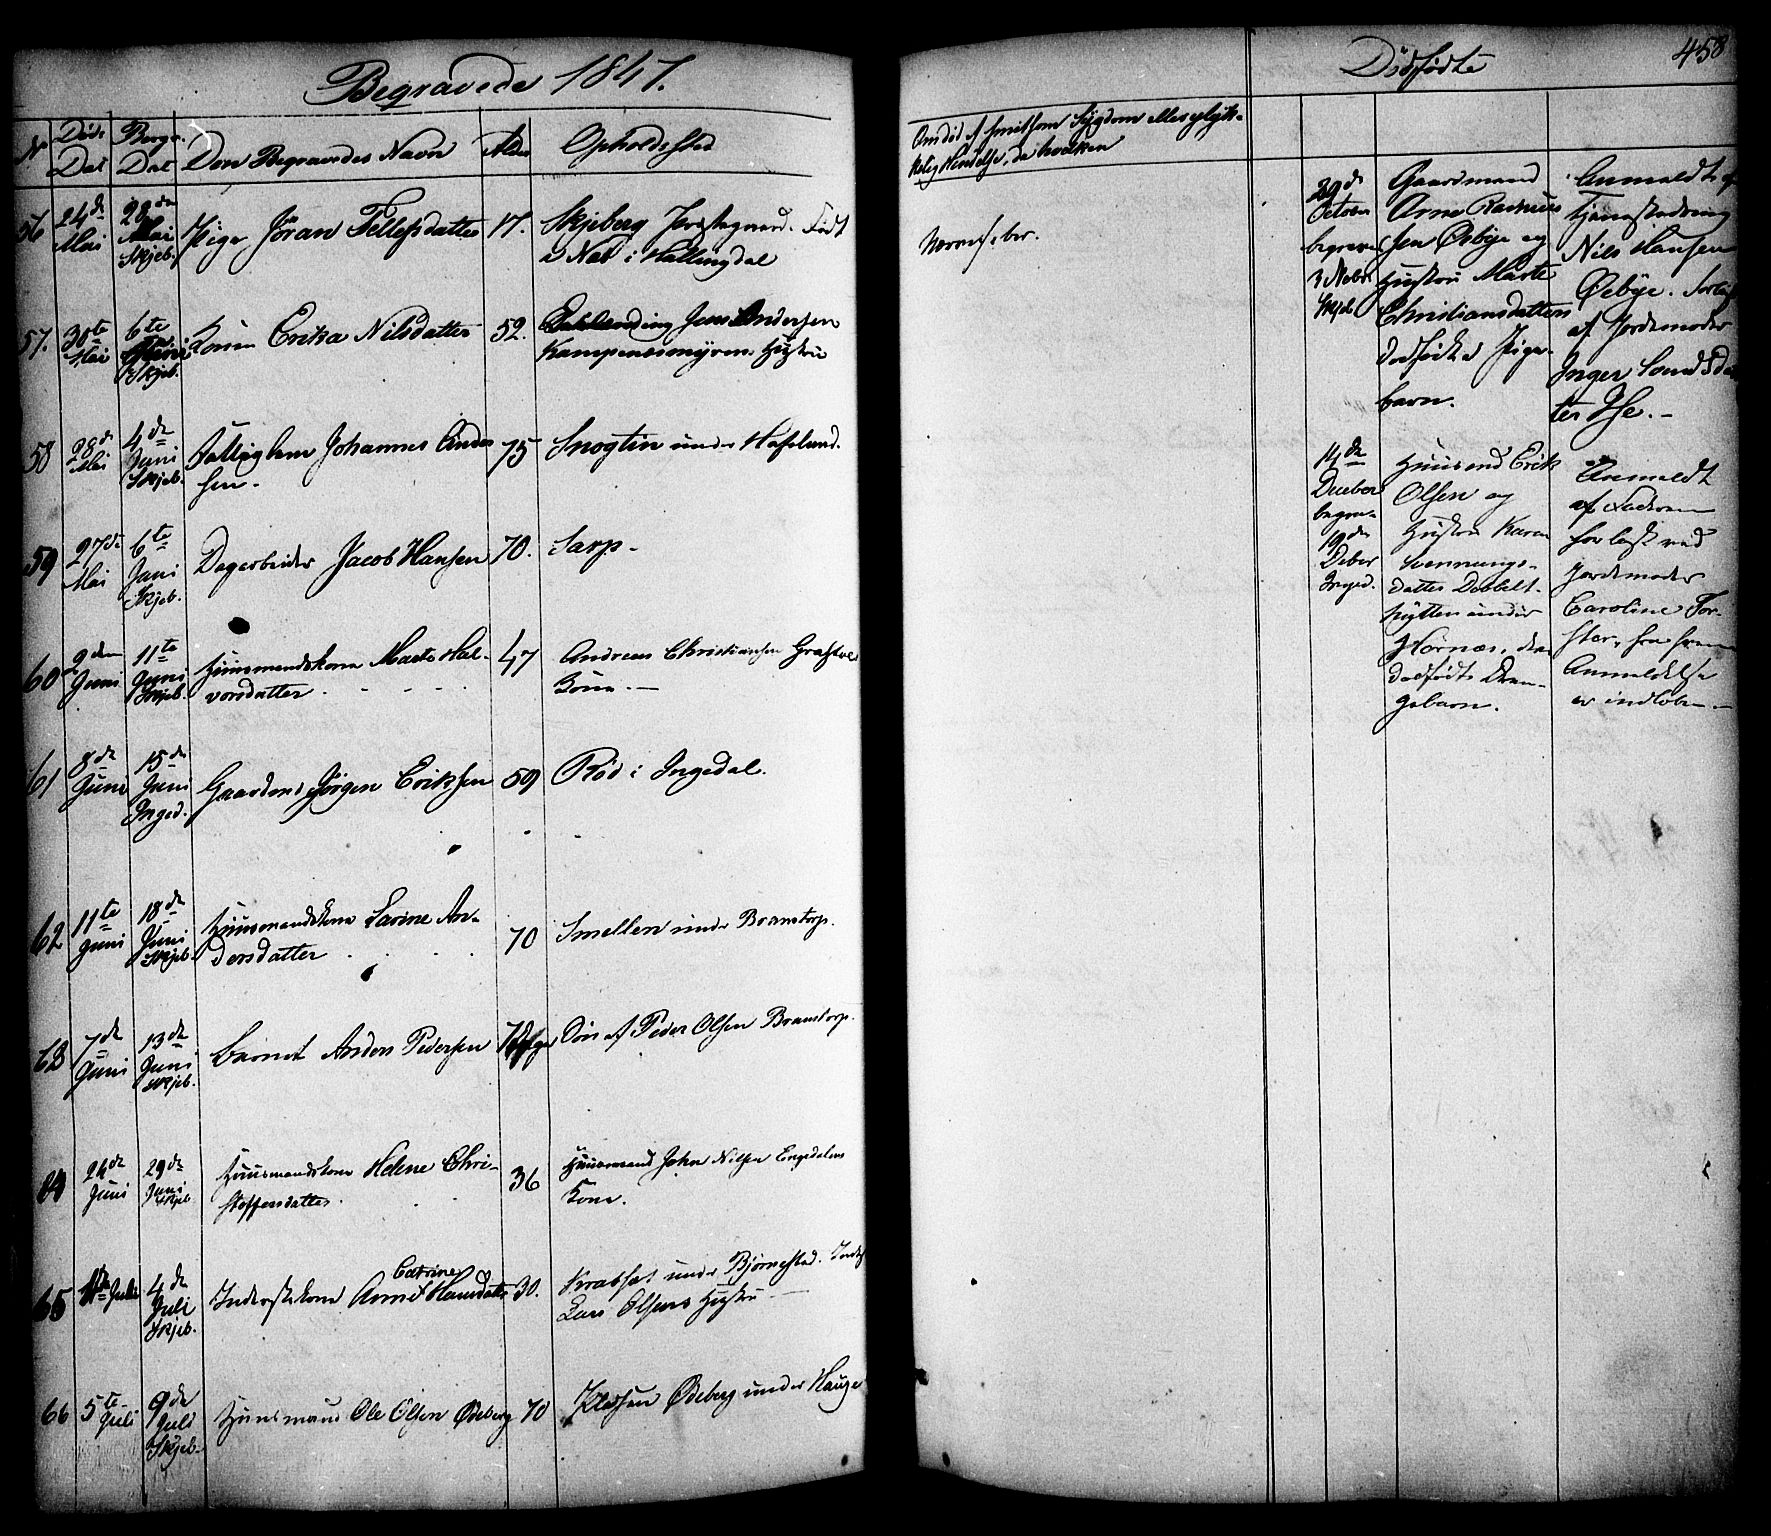 Begravede 1847.
No Døds Dat Begr. Dat Den Begravedes Navn Alder Opholdsted
56 24de Mai 28de Mai Skjeb. Pige Jöran Tellefsdatter 17. Skjeberg Prestegaard. Født
i Næs i Hallingdal
57. 30te Mai 6te Juni Skjeb. Konen Erika Nilsdatter 52. Jens Andersen
Kampenesmyrens Hustru
58 28de Mai 4de Juni Skjeb. Fattiglem Johannes Ander
sen. 75 Snogtin under Hafslund.
59 27de Mai 6te Juni Skjeb. Dagarbeider Jacob Hansen 70. Sarp.
60 9den Juni 11te Juni Skjeb. Huusmandskone Marte Hal-
vorsdatter 47 Andreas Christiansen
Kone.
61 8de Juni 15de Juni Inged. Gaardm. Jörgen Eriksen 59 Röd i Ingedal.
62 11te Juni 18de Juni Skjeb. Huusmandskone Sarine An-
dersdatter 70 Smellen under Bramstorp.
63 7de Juni 13de Juni Skjeb. Barnet Anders Pedersen Sön af Peder Olsen Bramstorp.
64 24de Juni 29de Juni Skjeb. Huusmandskone Helene Chri-
stoffersdatter 36 Huusmand John Nilsen Engedalens
Kone.
65 Juli 4de Juli Skjeb. Inderstkone Anne Catrine Hansdatter 30. Krabset under Björnstad. Inderst
Lars Olsens Hustru
66 5te Juli 9de Juli Skjeb. Huusmand Ole Olsen Ödeberg 70 Ödeberg under Hauge
Dödfødte
458
Om död af smitsom Sygdom eller ulyk-
kelig Hendelse, da hvilken
Nervefeber.
29de October begravet 3 Nobr. Skjeb
Gaardmand
Arne Rasmus
sen Oseby og
Hustru Marte
Christiansdatters
dødfødte Pige-
barn.
Anmeldt af
Tjenestedreng
Nils Hansen
Öeby.
af Jordemoder
Inger
ter Ise.
14de December begra. 19de Deber Inged.
Huusmand Erik
Olsen og
Hustru Karen
Svennungs-
datter Dobbelt-
hytten under
Hornæs, den
dødfødte Dren-
gebarn.
Anmeldt
af Faderen
forløst ved
Jordemoder
Caroline Tor-
ster, fra hvem
Anmeldelse
er indloben.